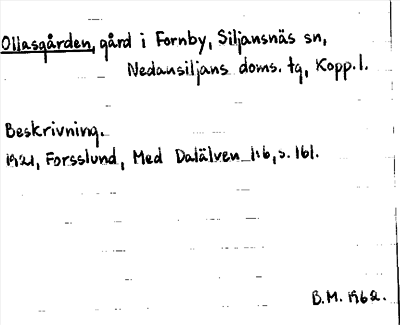 Ollasgården, gård i Fornby, Siljansnäs sn,
Nedansiljans doms. tg, Kopp. l.
Beskrivning.
1921, Forsslund, Med Dalälven 1:6, s. 161.
B.M. 1962.